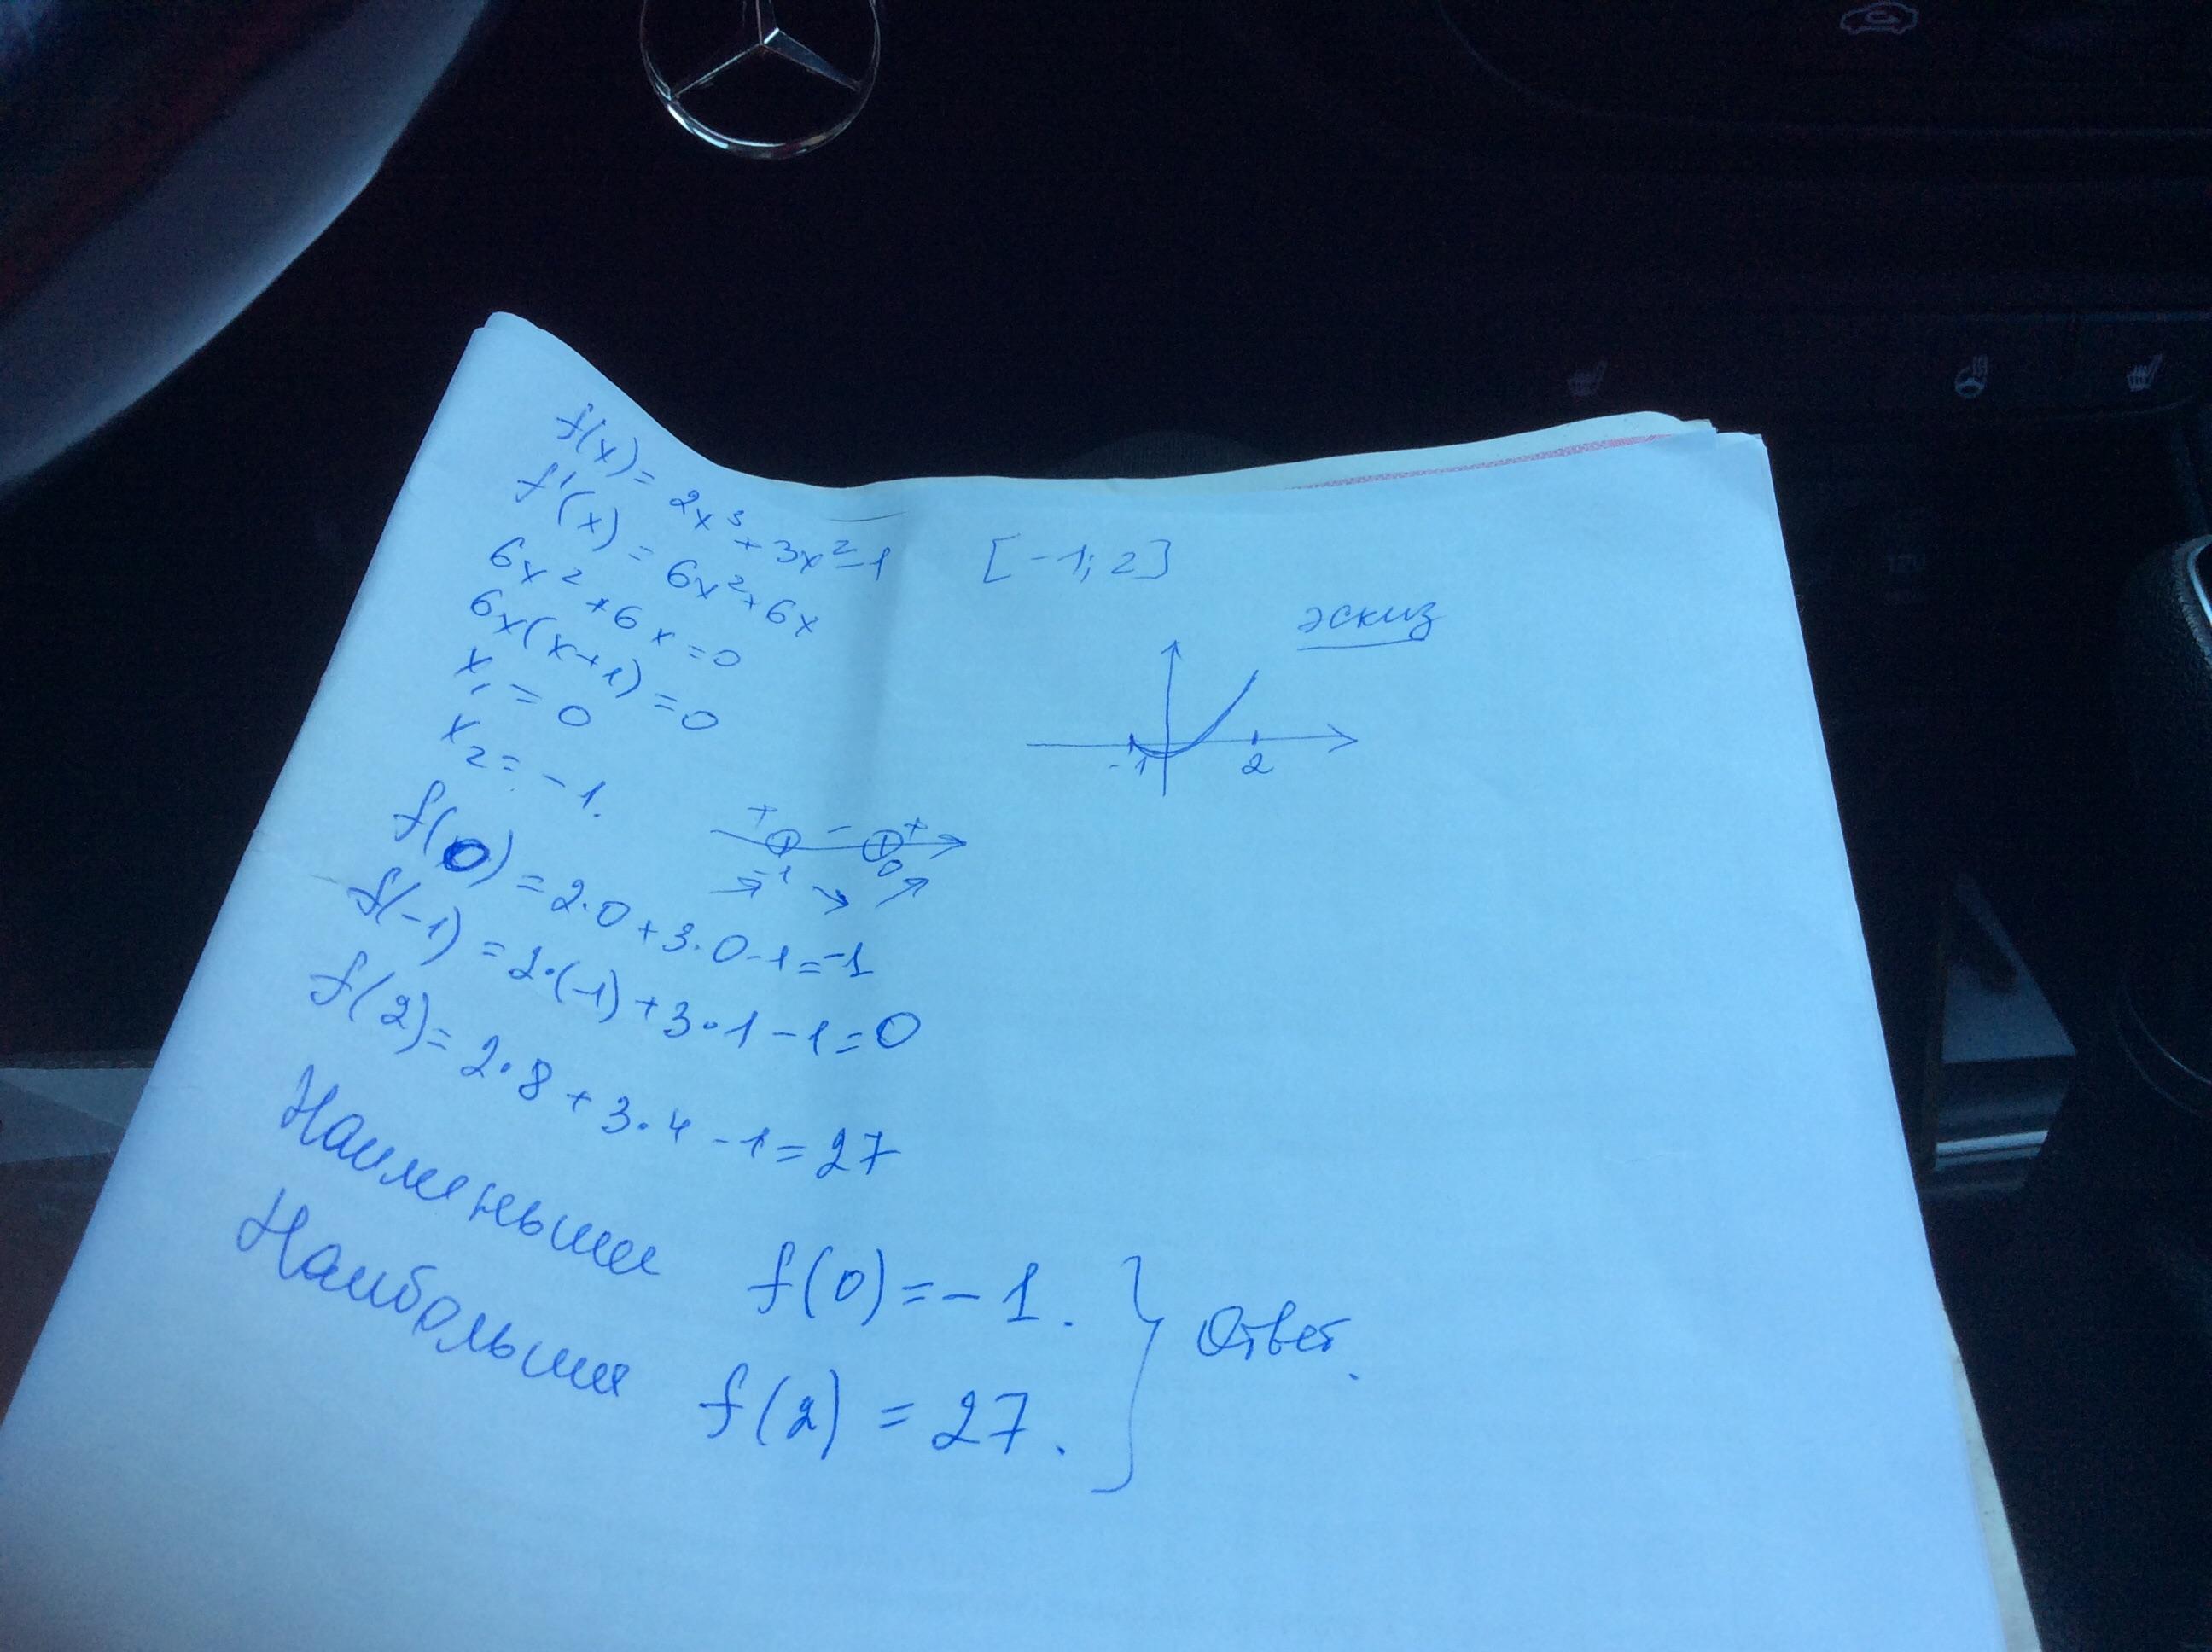 f(x) = 2x³ + 3x² - 1 [-1; 2]
f'(x) = 6x² + 6x
6x² + 6x = 0
6x(x+1) = 0
x₁ = 0
x₂ = -1.
эскиз
-1 2
+ - +
-1 0
f(0) = 2·0 + 3·0 - 1 = -1
f(-1) = 2·(-1) + 3·1 - 1 = 0
f(2) = 2·8 + 3·4 - 1 = 27
Наименьшее f(0) = -1.
Наибольшее f(2) = 27.
Ответ.